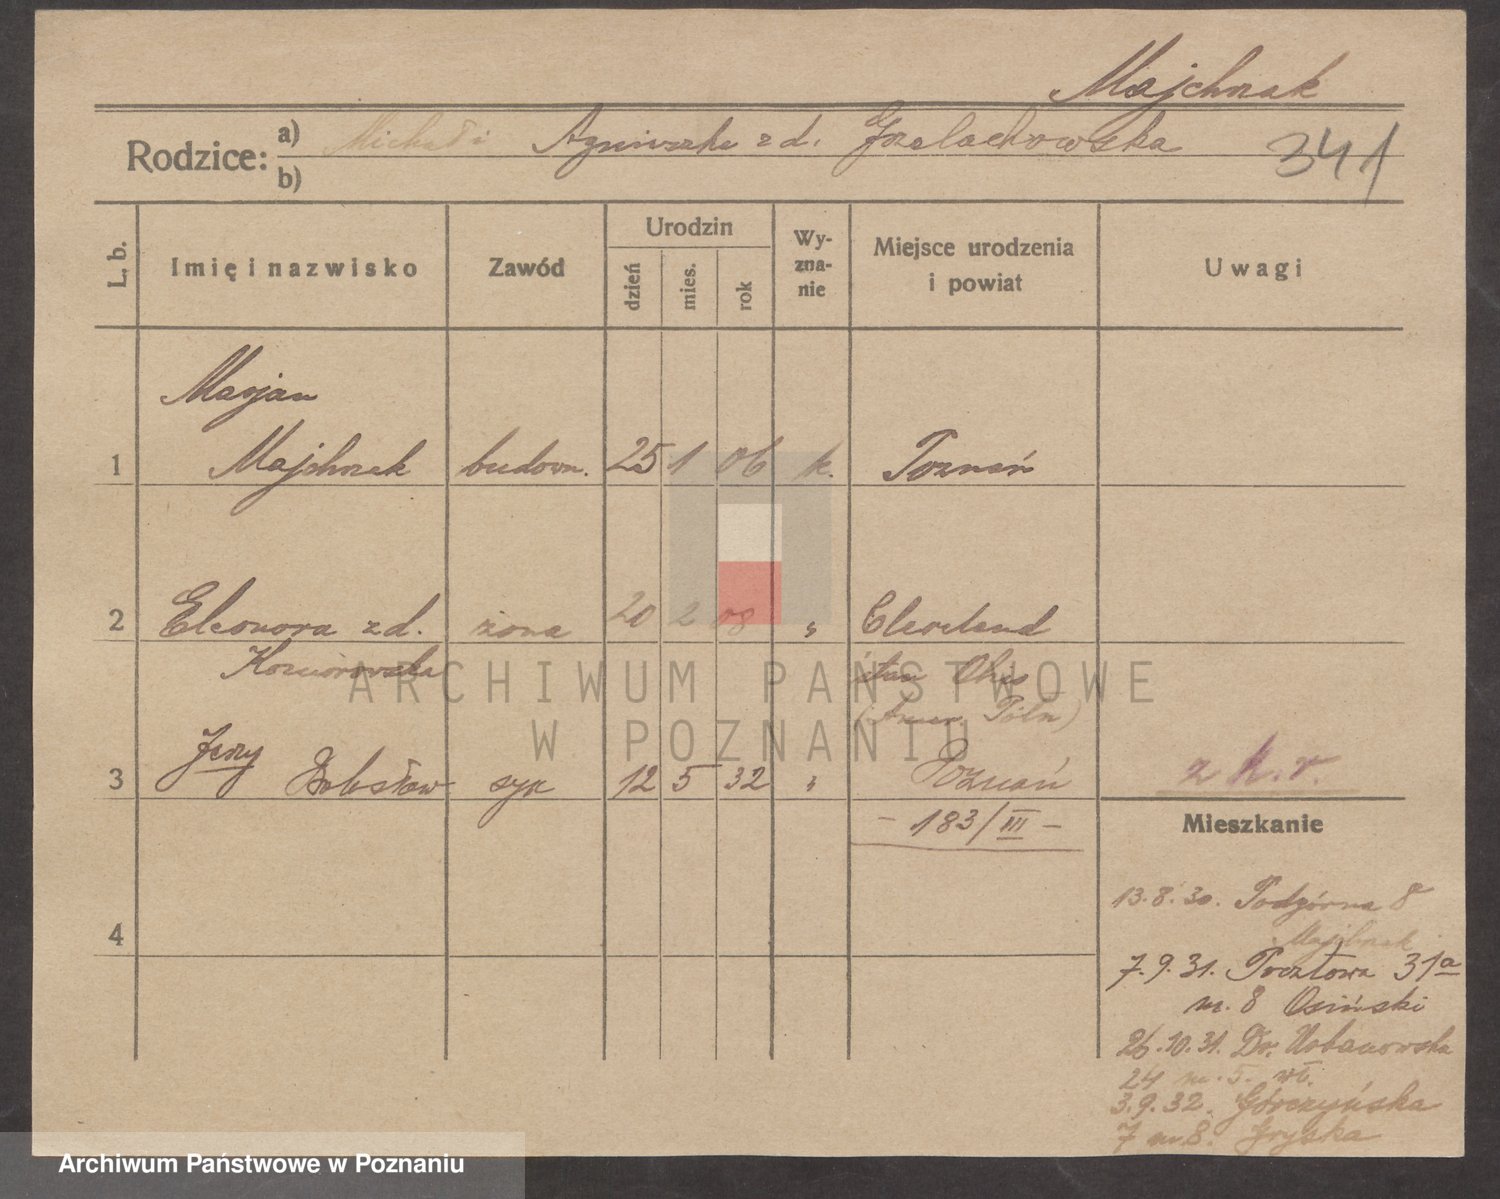 Majchrzak
Rodzice: a) Michał i Agnieszka z d. Grzelachowska
341
b)
L. b. Imię i nazwisko Zawód Urodzin dzień mies. rok Wy-zna-nie Miejsce urodzenia i powiat Uwagi
Marjan
1 Majchrzak budown. 25 1 06 k. Poznań
2 Eleonora z d. żona 20 2 08 " Cleveland
Komorowska stan Ohio
(Amer. Półn)
3 Jerzy syn 12 5 32 " Poznań z k. r.
- 183/III -
Mieszkanie
4
13.8.30. Podgórna 8
Majchrzak
7.9.31. Pocztowa 31a
m. 8 Osiński
26.10.31. Dr. Urbanowska
24 m. 5. wł.
3.9.32. Górczyńska
7 m. 8. Gryska
ARCHIWUM PAŃSTWOWE
W POZNANIU
Archiwum Państwowe w Poznaniu